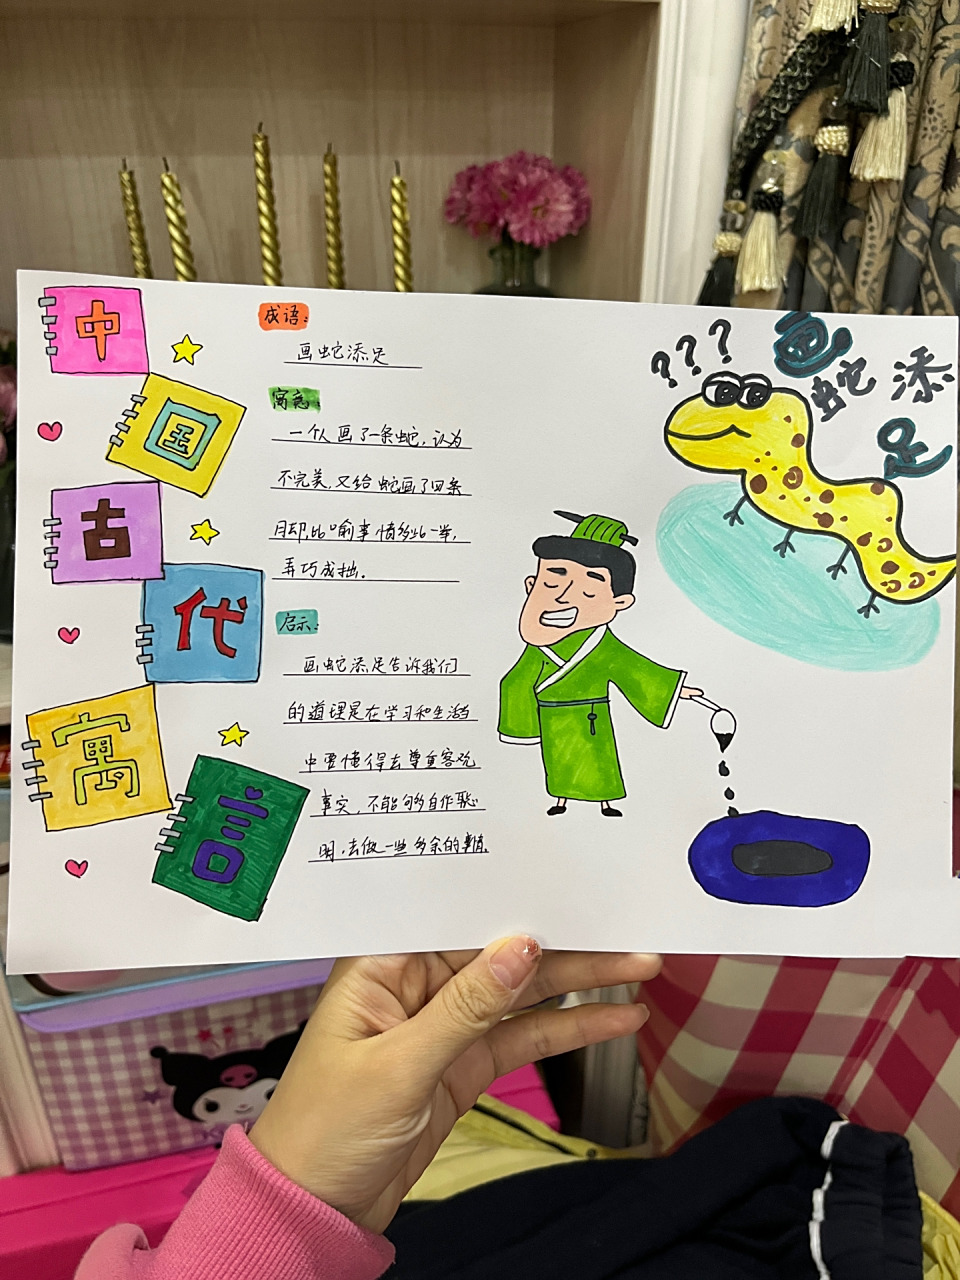 中
国
古
代
寓
言
成语:
画蛇添足
寓意:
一个人画了一条蛇,认为
不完美,又给蛇画了四条
脚,比喻事情多此一举,
弄巧成拙。
启示:
画蛇添足告诉我们
的道理是在学习和生活当
中要懂得去尊重客观
事实,不能够自作聪
明,去做一些多余的事情.
? ? ?
画蛇添足